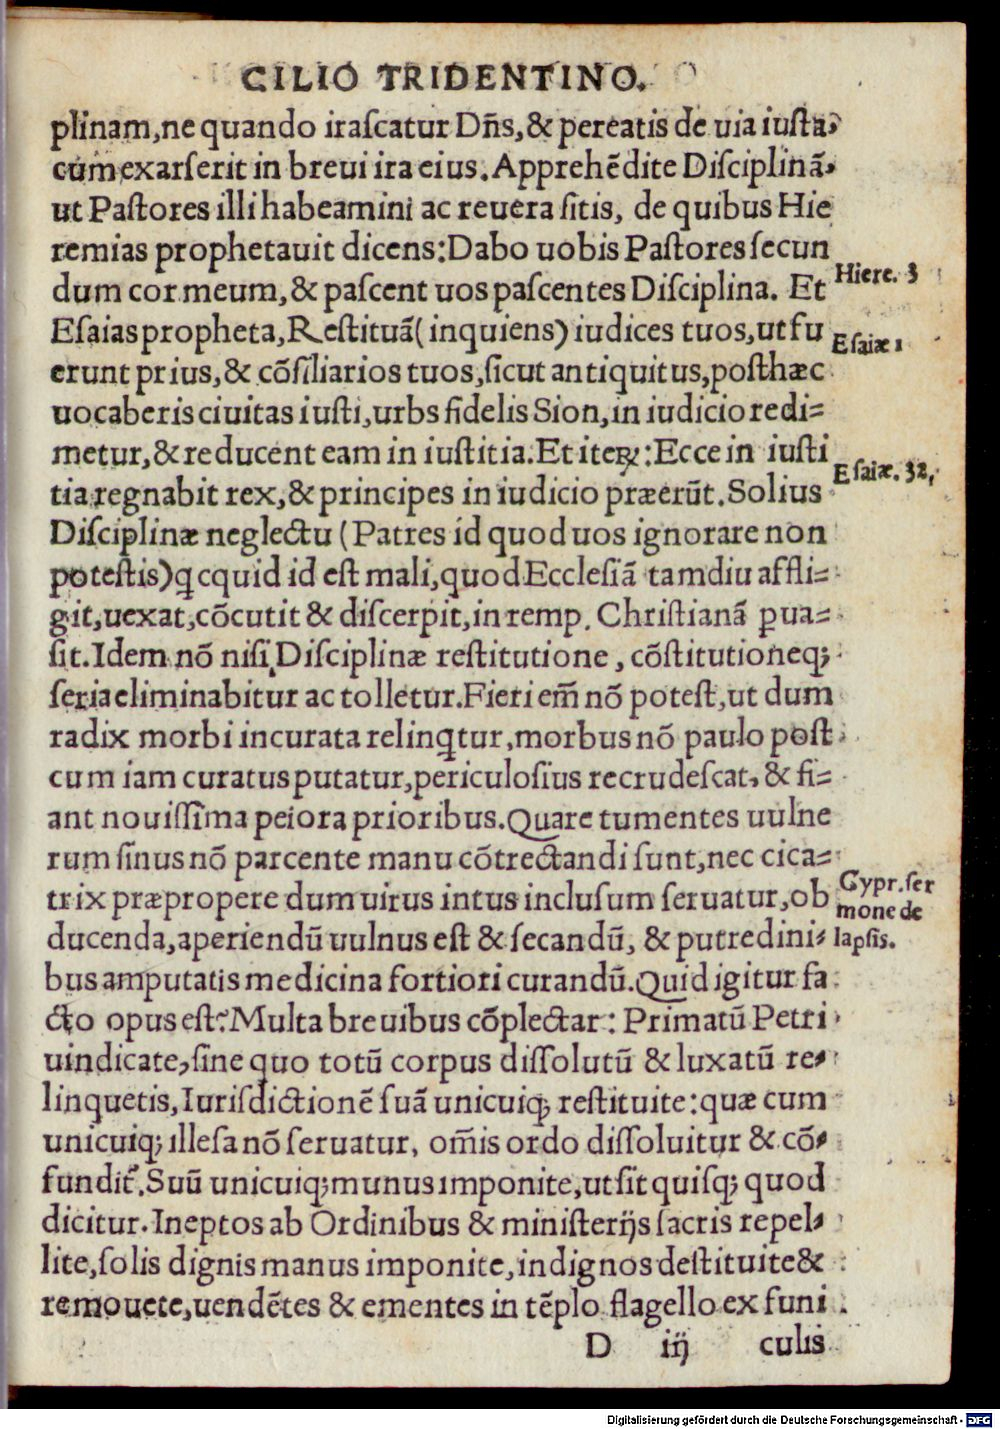 CILIO TRIDENTINO.
plinam, ne quando irascatur Dñs, & pereatis de uia iusta,
cum exarserit in breui ira eius. Apprehẽdite Disciplinã,
ut Pastores illi habeamini ac reuera sitis, de quibus Hie
remias prophetauit dicens: Dabo uobis Pastores secun
dum cor meum, & pascent uos pascentes Disciplina. Et
Hiere. 3
Esaias propheta, Restituã (inquiens) iudices tuos, ut fu
Esaiæ 1
erunt prius, & cõsiliarios tuos, sicut antiquitus, posthæc
uocaberis ciuitas iusti, urbs fidelis Sion, in iudicio redi=
metur, & reducent eam in iustitia. Et iteꝝ: Ecce in iusti
Esaiæ. 32,
tia regnabit rex, & principes in iudicio præerũt. Solius
Disciplinæ neglectu (Patres id quod uos ignorare non
potestis) qcquid id est mali, quod Ecclesiã tamdiu affli=
git, uexat, cõcutit & discerpit, in remp. Christianã ꝑua=
sit. Idem nõ nisi Disciplinæ restitutione, cõstitutioneq;
seria eliminabitur ac tolletur. Fieri em̃ nõ potest, ut dum
radix morbi incurata relinqtur, morbus nõ paulo post
cum iam curatus putatur, periculosius recrudescat, & fi=
ant nouissima peiora prioribus. Quare tumentes uulne
rum sinus nõ parcente manu cõtrectandi sunt, nec cica=
trix præpropere dum uirus intus inclusum seruatur, ob
Cypr. ser
mone de
lapsis.
ducenda, aperiendũ uulnus est & secandũ, & putredini=
bus amputatis medicina fortiori curandũ. Quid igitur fa
cto opus est? Multa breuibus cõplectar: Primatũ Petri
uindicate, sine quo totũ corpus dissolutũ & luxatũ re=
linquetis, Iurisdictionẽ suã unicuiq; restituite: quæ cum
unicuiq; illesa nõ seruatur, om̃is ordo dissoluitur & cõ=
fundit̃. Suũ unicuiq; munus imponite, ut sit quisq; quod
dicitur. Ineptos ab Ordinibus & ministerijs sacris repel=
lite, solis dignis manus imponite, indignos destituite &
remouete, uendẽtes & ementes in tẽplo flagello ex funi
D iij culis
Digitalisierung gefördert durch die Deutsche Forschungsgemeinschaft - DFG